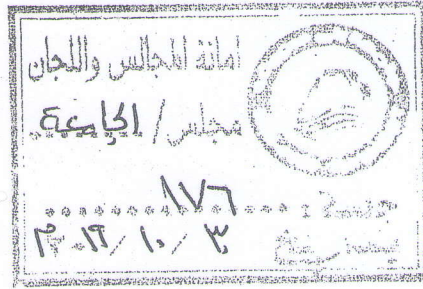 امانة المجالس واللجان
مجلس / الجامعة
جلسة : ١٧٦
٣٠ / ١٠ / ٢٠١٩م